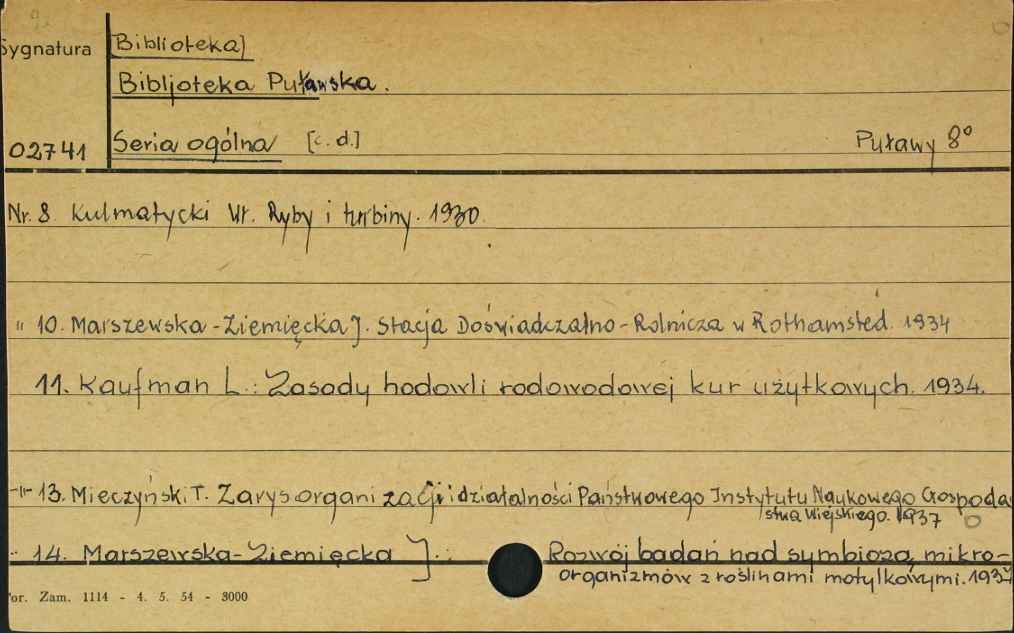 Sygnatura [Biblioteka]
Bibljoteka Puławska.
02741 Seria ogólna [c. d.] Puławy 8°
Nr. 8 Kulmatycki Wł. Ryby i turbiny. 1930.
" 10. Marszewska-Ziemięcka J. Stacja Doświadczalno-Rolnicza w Rothamsted. 1934
11. Kaufman L.: Zasady hodowli rodowodowej kur użytkowych. 1934.
-"- 13. Mieczyński T. Zarys organizacji i działalności Państwowego Instytutu Naukowego Gospoda
stwa Wiejskiego. 1937
" 14. Marszewska-Ziemięcka J.: Rozwój badań nad symbiozą mikro-
organizmów z roślinami motylkowymi.
or. Zam. 1114 - 4. 5. 54 - 3000